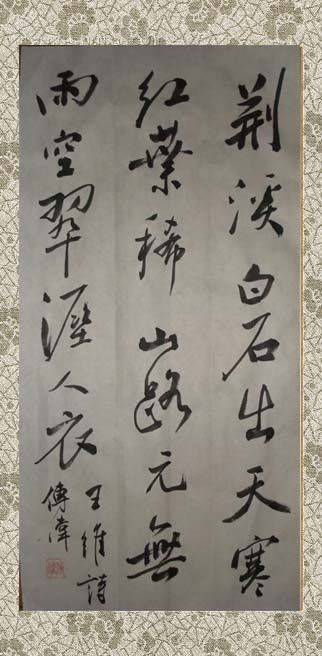 荆溪白石出天寒
红葉稀山路元無
雨空翠溼人衣
王維詩
傅偉